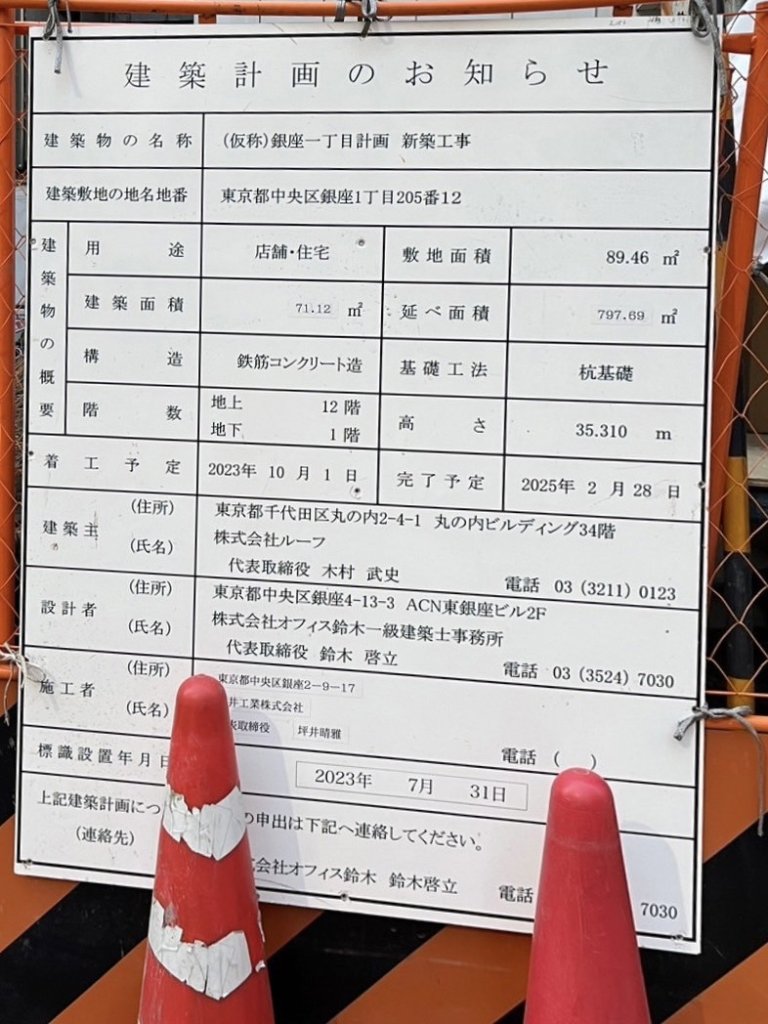 建築計画のお知らせ
建築物の名称 (仮称)銀座一丁目計画 新築工事
建築敷地の地名地番 東京都中央区銀座1丁目205番12
建築物の概要
用途 店舗・住宅 敷地面積 89.46 ㎡
建築面積 71.12 ㎡ 延べ面積 797.69 ㎡
構造 鉄筋コンクリート造 基礎工法 杭基礎
階数 地上 12 階 高さ 35.310 m
地下 1 階
着工予定 2023年 10 月 1 日 完了予定 2025年 2 月 28 日
建築主 (住所) 東京都千代田区丸の内2-4-1 丸の内ビルディング34階
(氏名) 株式会社ルーフ
代表取締役 木村 武史 電話 03 (3211) 0123
設計者 (住所) 東京都中央区銀座4-13-3 ACN東銀座ビル2F
(氏名) 株式会社オフィス鈴木一級建築士事務所
代表取締役 鈴木 啓立 電話 03 (3524) 7030
施工者 (住所) 東京都中央区銀座2-9-17
(氏名) 井工業株式会社
表取締役 坪井晴雅
電話 ( )
標識設置年月日 2023年 7月 31日
上記建築計画につ の申出は下記へ連絡してください。
(連絡先) 会社オフィス鈴木 鈴木啓立 電話 7030